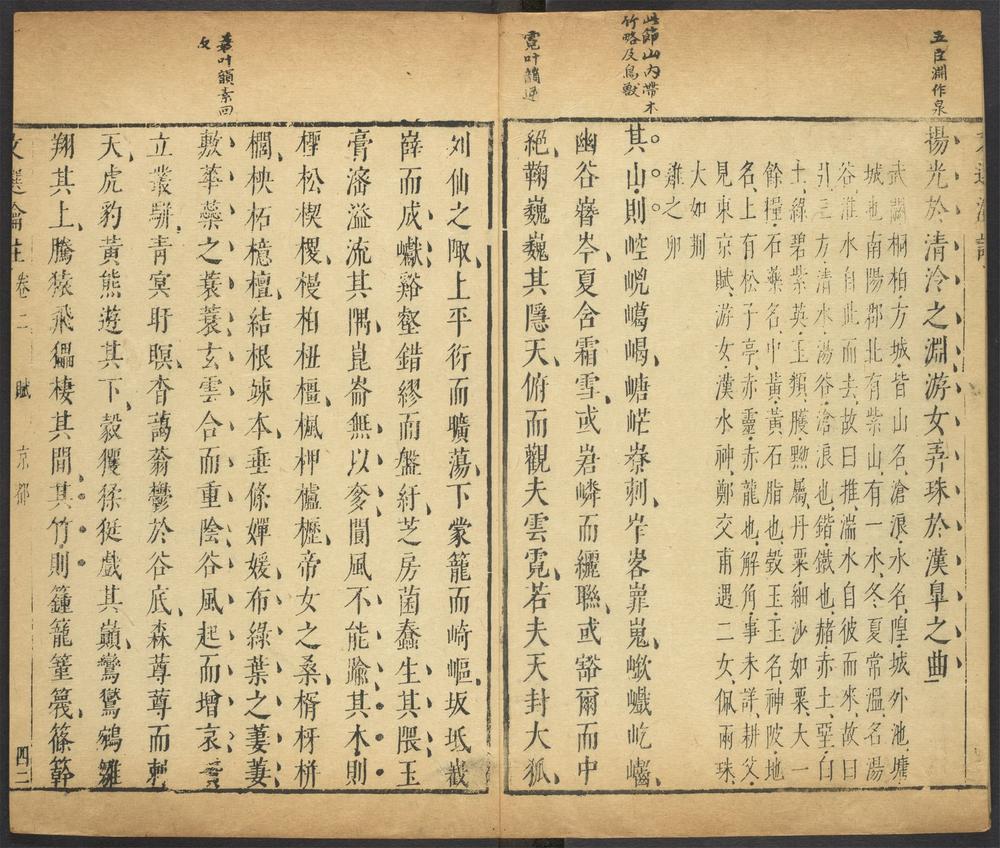 五臣淵作泉
揚光於清泠之淵游女弄珠於漢皋之曲
武闕桐柏方城皆山名滄浪水名隍城外池墉
城也南陽郡北有紫山有一水冬夏常溫名湯
谷淮水自此而去故曰推湍水自彼而來故曰
引三方清水湯谷滄浪也鍇鐵也赭赤土堊白
土綠碧紫英玉類雘黝屬丹粟細沙如粟大一
餘糧石藥名中黃黃石脂也瑴玉玉名神陂地
名上有松子亭赤靈赤龍也解角事未詳耕父
見東京賦游女漢水神鄭交甫遇二女佩兩珠
大如荆
雞之卵
此節山內帶木
竹略及鳥獸
其山則崆㟅嶱嵑嵣㟐嶚剌岝㟯㠑嵬嶔巇屹㠢
幽谷嶜岑夏含霜雪或峮嶙而纚聯或豁爾而中
霓叶
絕鞠巍巍其隱天俯而觀夫雲霓若夫天封大狐
列仙之陬上平衍而曠蕩下蒙籠而崎嶇坂坻嶻
嶭而成甗谿壑錯繆而盤紆芝房菌蠢生其隈玉
膏滵溢流其隅崑崙無以奓閬風不能踰其木則
檉松楔㮨槾柏杻橿楓柙櫨櫪帝女之桑楈枒栟
櫚柍柘檍檀結根竦本垂條嬋媛布綠葉之萋萋
敷華蘂之蓑蓑玄雲合而重陰谷風起而增哀
立叢駢青冥盱瞑杳藹蓊鬱於谷底森蓴蓴而刺
天虎豹黃熊遊其下豰玃猱狿戲其巔鸞鸑鵷雛
翔其上騰猿飛蠝棲其間其竹則籦籠䈽篾篠簳
文選瀹註 卷二 賦 京都 四二